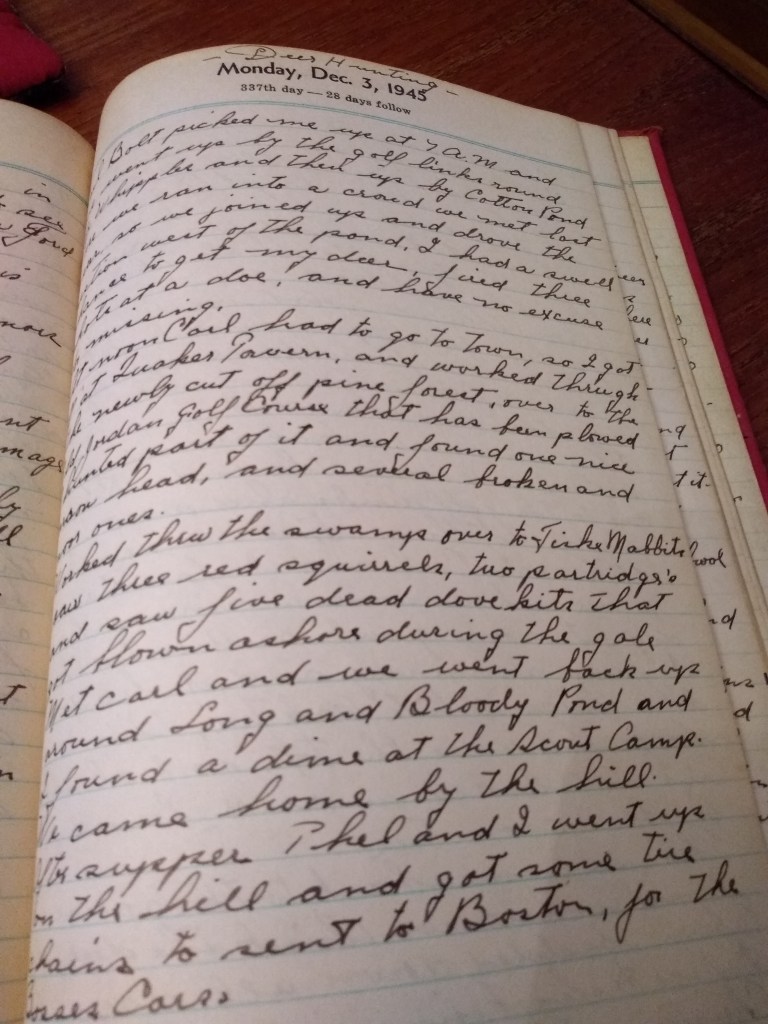 - Deer Hunting -
Monday, Dec. 3, 1945
337th day — 28 days follow
Bolt picked me up at 7 A.M and
went up by the golf links round
Whipple and then up by Cotton Pond
we ran into a crowd we met last
so we joined up and drove the
west of the pond, I had a swell
to get my deer, fired three
at a doe, and have no excuse
missing.
noon Carl had to go to town, so I got
at Quaker Tavern, and worked through
newly cut off pine forest, over to the
Jordan Golf Course that has been plowed
part of it and found one nice
head, and several broken and
ones.
thru the swamp over to Jicke Mabbits
three red squirrels, two partridge's
and saw five dead dovekits that
blown ashore during the gale
Met Carl and we went back up
around Long and Bloody Pond and
I found a dime at the Scout Camp.
We came home by the hill.
After supper Phel and I went up
on the hill and got some tire
chains to sent to Boston, for the
Cars.